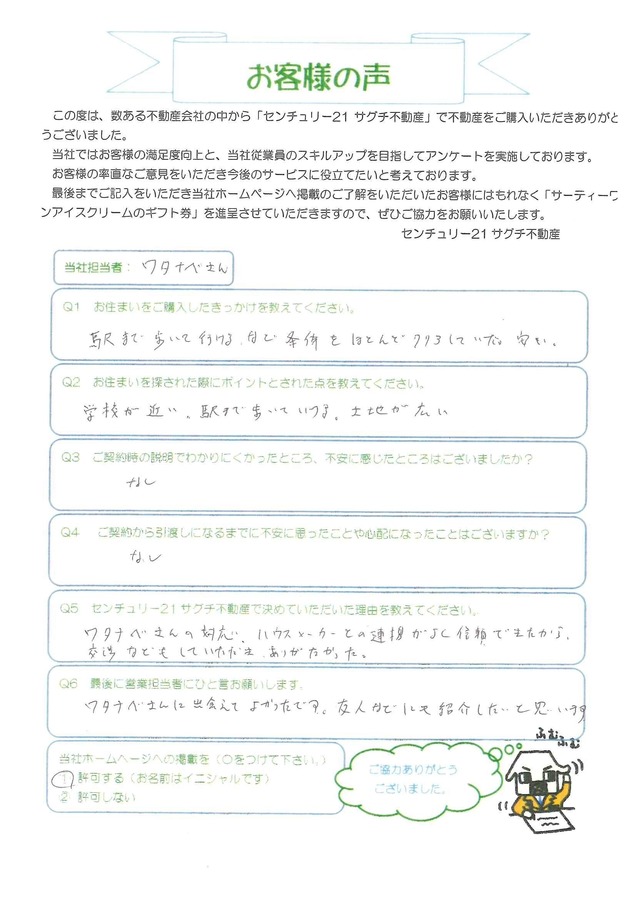 お客様の声
この度は、数ある不動産会社の中から「センチュリー21 サグチ不動産」で不動産をご購入いただきありがと
うございました。
当社ではお客様の満足度向上と、当社従業員のスキルアップを目指してアンケートを実施しております。
お客様の率直なご意見をいただき今後のサービスに役立てたいと考えております。
最後までご記入をいただき当社ホームページへ掲載のご了解をいただいたお客様にはもれなく「サーティーワ
ンアイスクリームのギフト券」を進呈させていただきますので、ぜひご協力をお願いいたします。
センチュリー21 サグチ不動産
当社担当者： ワタナベさん
Q1 お住まいをご購入したきっかけを教えてください。
駅まで歩いて行ける、など条件をほとんどクリアしていた。安い。
Q2 お住まいを探された際にポイントとされた点を教えてください。
学校が近い、駅まで歩いていける。土地が広い
Q3 ご契約時の説明でわかりにくかったところ、不安に感じたところはございましたか？
なし
Q4 ご契約から引渡しになるまでに不安に思ったことや心配になったことはございますか？
なし
Q5 センチュリー21 サグチ不動産で決めていただいた理由を教えてください。
ワタナベさんの対応、ハウスメーカーとの連携がよく信頼できたから、
交渉などもしていただき、ありがたかった。
Q6 最後に営業担当者にひと言お願いします。
ワタナベさんに出会えてよかったです。友人などにも紹介したいと思います
ふむふむ
当社ホームページへの掲載を（〇をつけて下さい。）
1 許可する（お名前はイニシャルです）
2 許可しない
ご協力ありがとう
ございました。